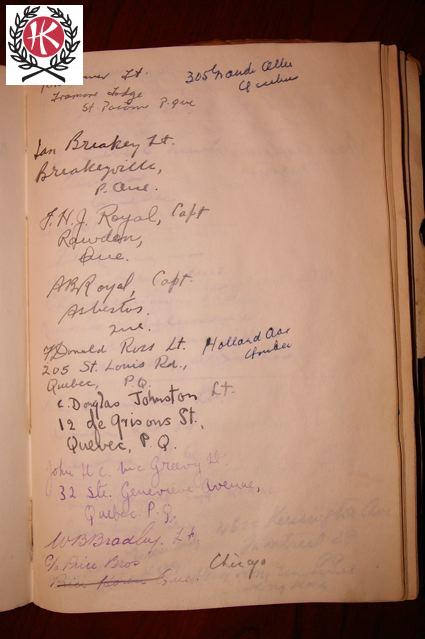 HK
Lt.
305 Grande Allee
Quebec
Tramore Lodge
St Pacome P. Que
Ian Breakey Lt.
Breakeyville,
P. Que.
F.H.J. Royal, Capt
Rawdon,
Que.
AB Royal, Capt.
Asbestos.
Que.
F Donald Ross Lt.
Holland Ave
Quebec
205 St. Louis Rd.,
Quebec, P.Q.
C. Douglas Johnston Lt.
12 de Grisons St.,
Quebec, P.Q.
John H C McGreevy Lt.
32 Ste. Genevieve Avenue,
Quebec P.Q.
W B Bradley. Lt.
c/o Price Bros
Chicago
Que